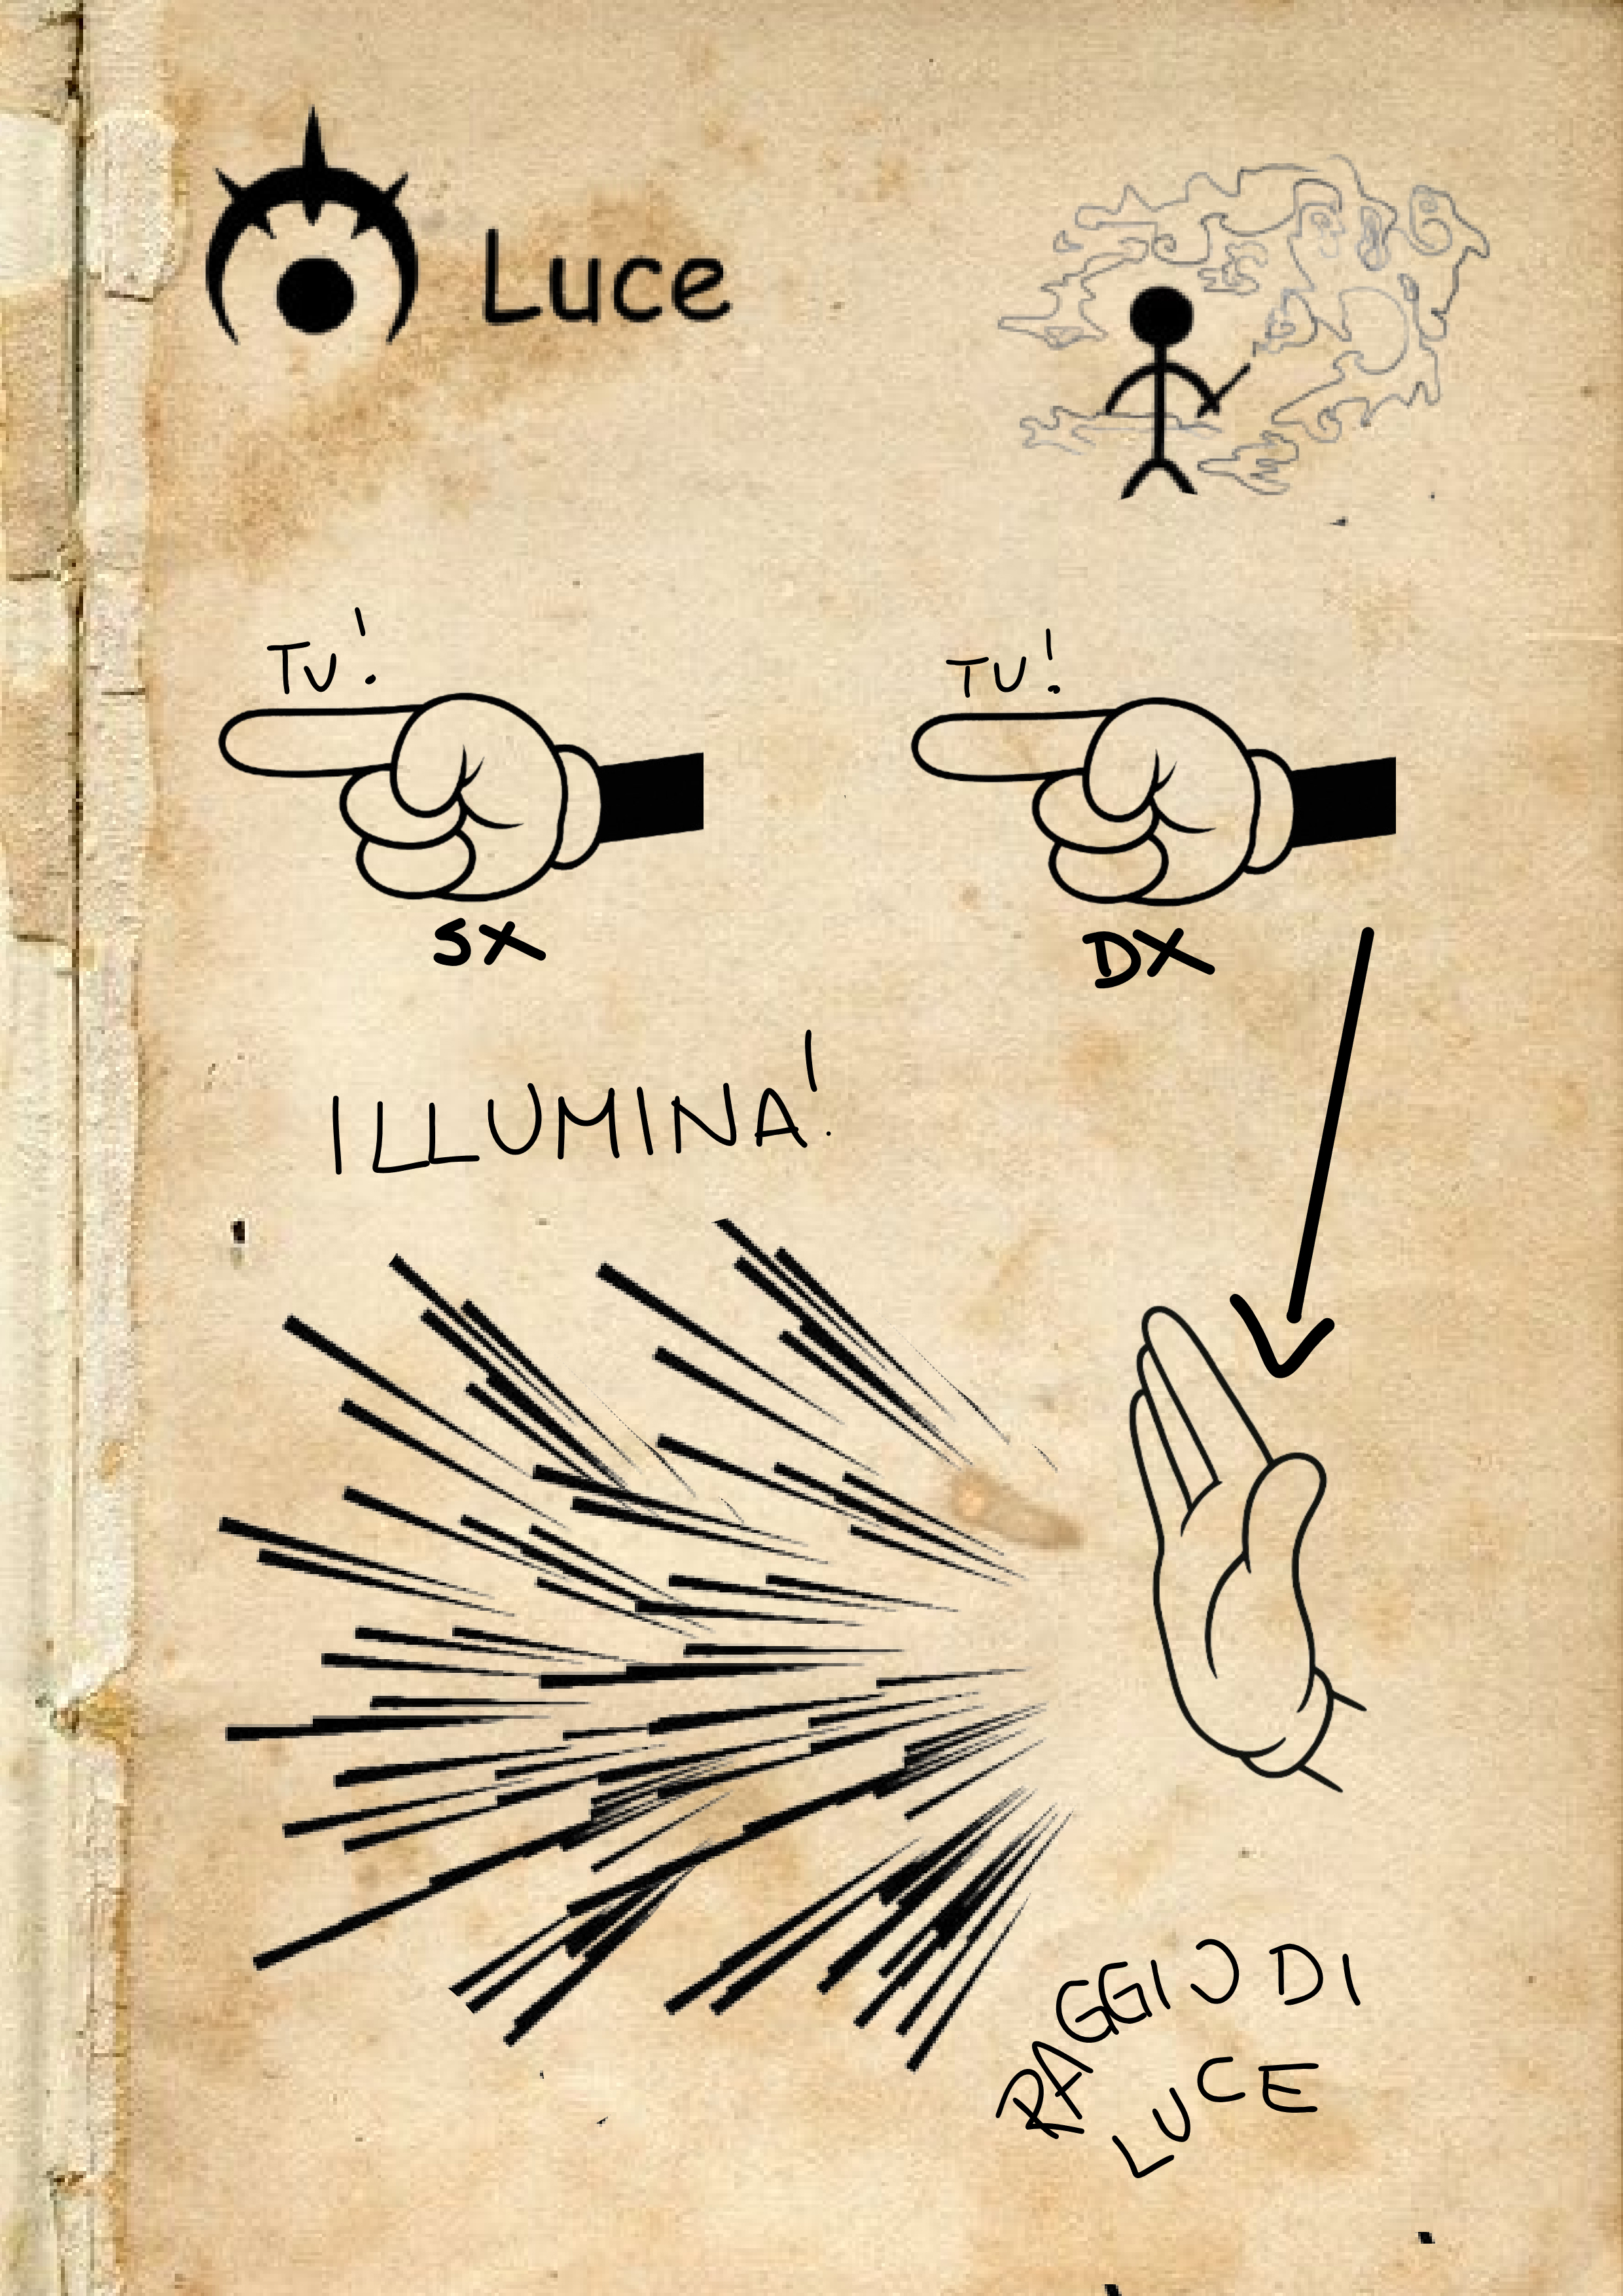 Luce
TU!
TU!
SX
DX
ILLUMINA!
RAGGIO DI
LUCE